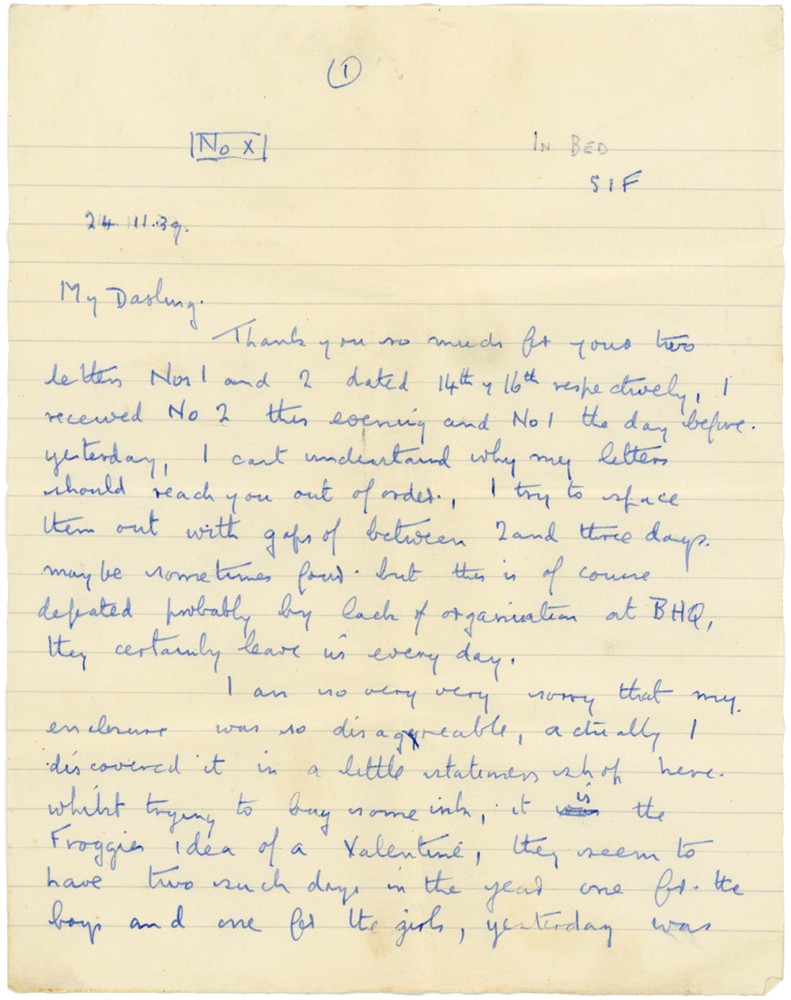 ①
No X
IN BED
S1F
24 11.39.
My Darling.
Thank you so much for your two
letters Nos 1 and 2 dated 14th & 16th respectively, I
received No 2 this evening and No 1 the day before.
yesterday, I cant understand why my letters
should reach you out of order., I try to space
them out with gaps of between 2 and three days.
maybe sometimes four. but this is of course
defeated probably by lack of organisation at BHQ,
they certainly leave us every day.
I am so very very sorry that my
enclosure was so disagreeable, actually I
discovered it in a little stationers shop here.
whilst trying to buy some ink, it is the
Froggies idea of a Valentine, they seem to
have two such days in the year one for the
boys and one for the girls, yesterday was